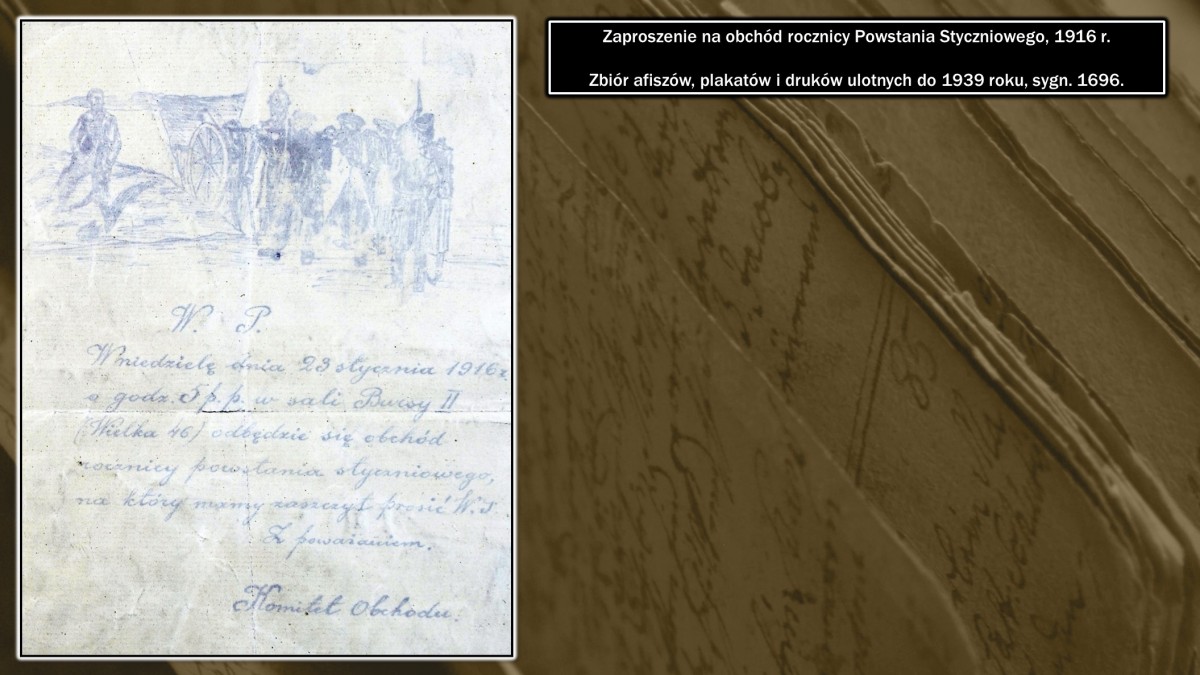 Zaproszenie na obchód rocznicy Powstania Styczniowego, 1916 r.
Zbiór afiszów, plakatów i druków ulotnych do 1939 roku, sygn. 1696.
W. P.
W niedzielę dnia 23 stycznia 1916 r.
o godz. 5 p. p. w sali Bursy II
(Wielka 46) odbędzie się obchód
rocznicy powstania styczniowego,
na który mamy zaszczyt prosić W. P.
Z poważaniem.
Komitet Obchodu.